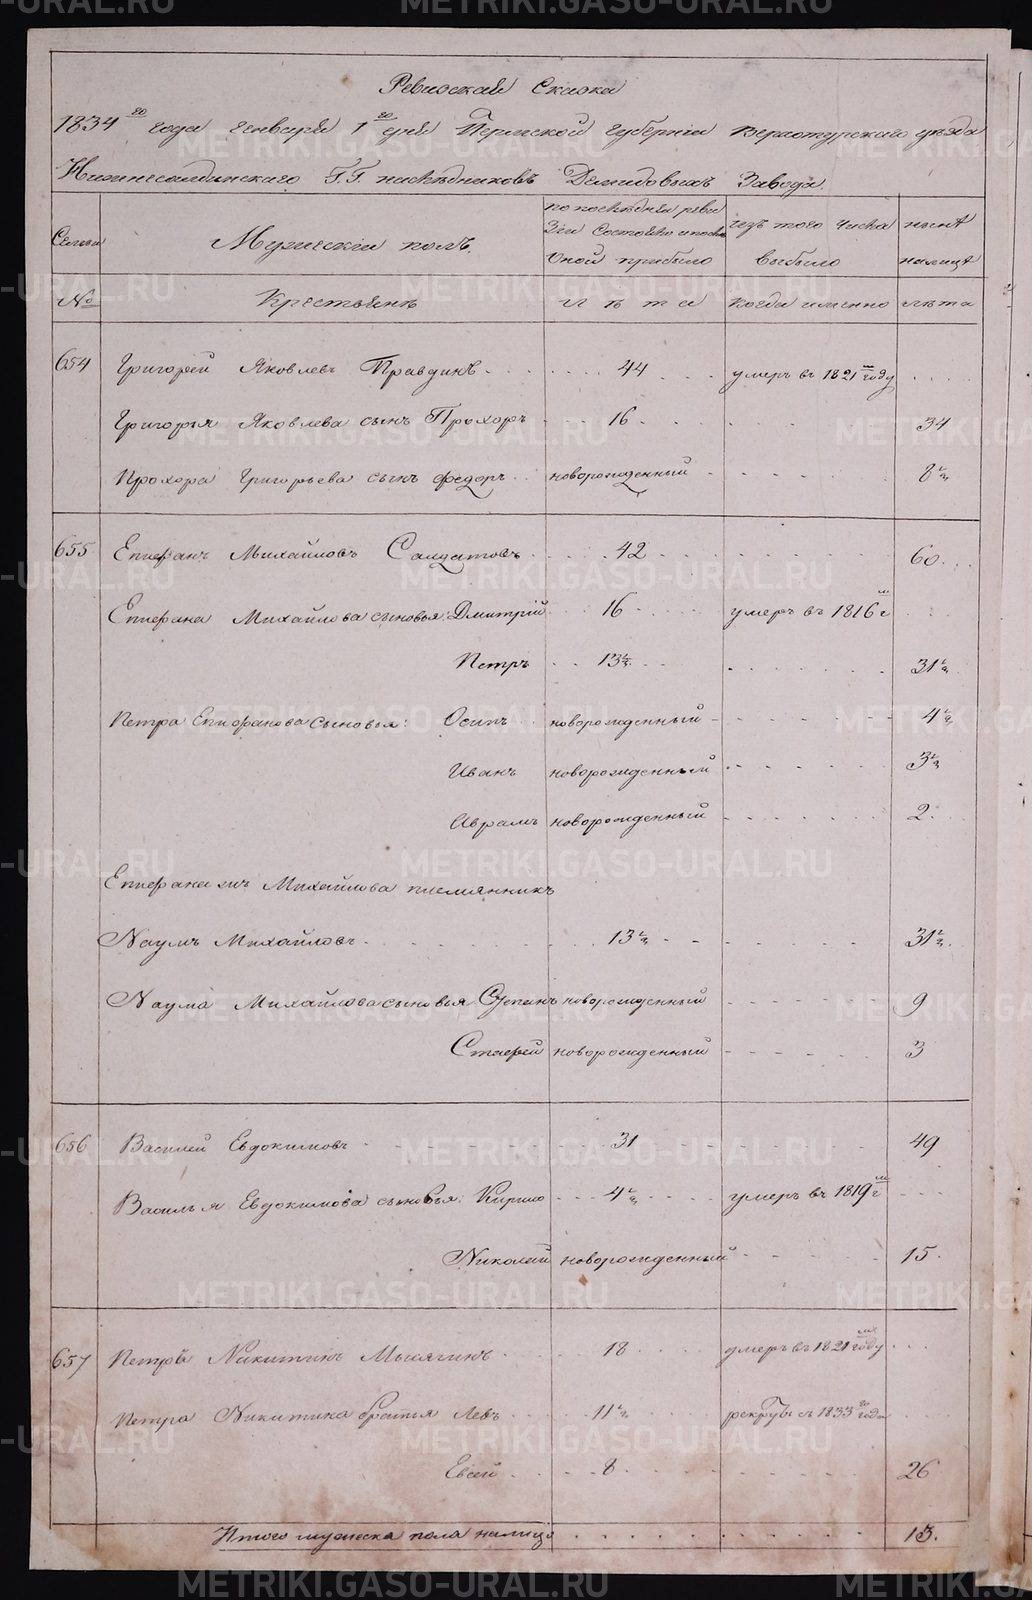 Ревизская Сказка
1834го года Генваря 1го дня Пермской Губернии Верхотурскаго уѣзда
Нижнесалдинскаго Г.Г. наслѣдниковъ Демидовыхъ Завода
Семьи Мужескiй полъ. по послѣдней реви зiи Состояло и послѣ Оной прибыло изъ того числа выбыло нынѣ налицѣ
№ Крестьянъ лѣта когда именно лѣта
654 Григорей Яковлевъ Правдинъ 44 умеръ въ 1821м году
Григорья Яковлева сынъ Прохоръ 16 34
Прохора Григорьева сынъ Федоръ новорожденный 8½
655 Епифанъ Михайловъ Салдатовъ 42 60
Епифана Михайлова сыновья: Дмитрiй 16 умеръ въ 1816м г
Петръ 13½ 31½
Петра Епифанова Сыновья: Осипъ новорожденный 4½
Иванъ новорожденный 3½
Аврамъ новорожденный 2
Епифана Михайлова племянникъ
Наумъ Михайловъ 13½ 31½
Наума Михайлова сыновья Степанъ новорожденный 9
новорожденный 3
656 Василей Евдокимовъ 31 49
Василья Евдокимова сыновья: Кирило 4½ умеръ въ 1819м г
Николай новорожденный 15
657 Петръ Никитинъ 18 умеръ въ 1821мъ году
Петра Никитина братья Левъ 11½ рекрутъ съ 1833го года
Евсей 8 26
Итого мужеска пола налицо 13.
METRIKI.GASO-URAL.RU